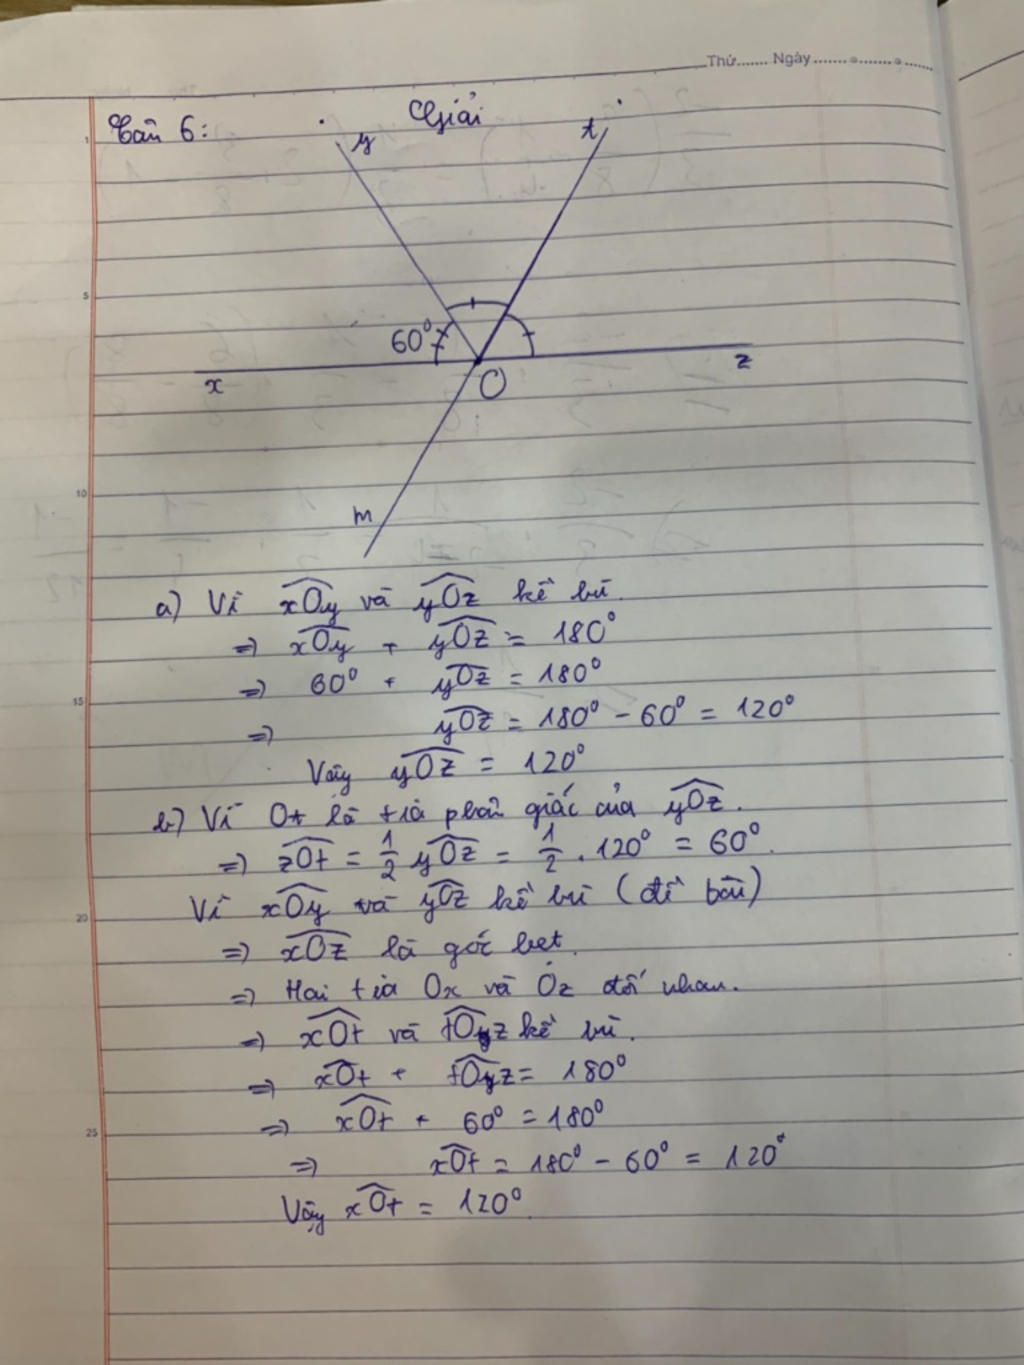 Thứ....... Ngày.......
Giải
Câu 6:
y
t
60°
x
O
z
m
1
5
10
15
20
25
a) Vì xOy và yOz kề bù.
=> xOy + yOz = 180°
=> 60° + yOz = 180°
=> yOz = 180° - 60° = 120°
Vậy yOz = 120°
b) Vì Ot là tia phân giác của yOz.
=> zOt = 1/2 yOz = 1/2 . 120° = 60°.
Vì xOy và yOz kề bù (đề bài)
=> xOz là góc bẹt.
=> Hai tia Ox và Oz đối nhau.
=> xOt và tOz kề bù.
=> xOt + tOz = 180°
=> xOt + 60° = 180°
=> xOt = 180° - 60° = 120°
Vậy xOt = 120°.